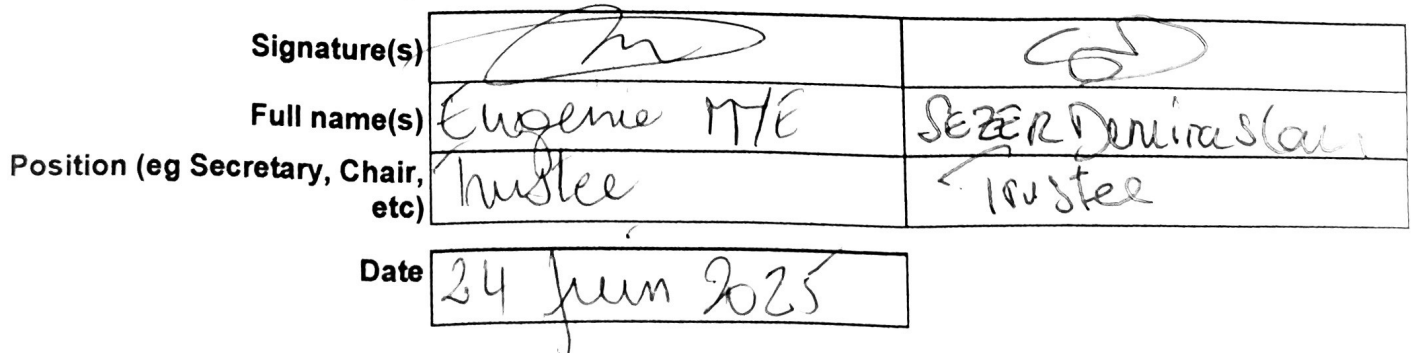 Signature(s)
Full name(s) Eugenie M/E SEZER Demiraslan
Position (eg Secretary, Chair, etc) Trustee Trustee
Date 24 Juin 2025